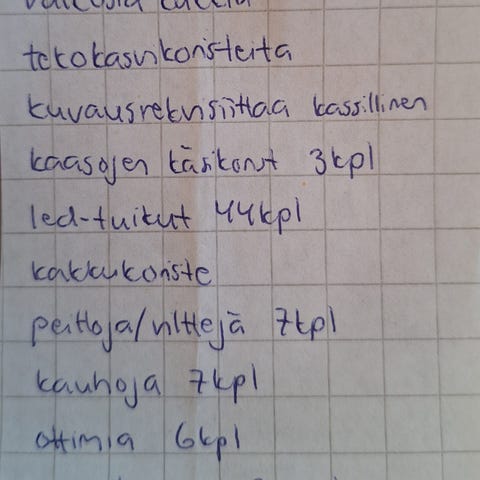 valkosia
tekokasvikoristeita
kuvausrekvisiittaa kassillinen
kaasojen käsikorut 3kpl
led-tuikut 44kpl
kakkukoriste
peittoja/vilttejä 7kpl
kauhoja 7kpl
ottimia 6kpl